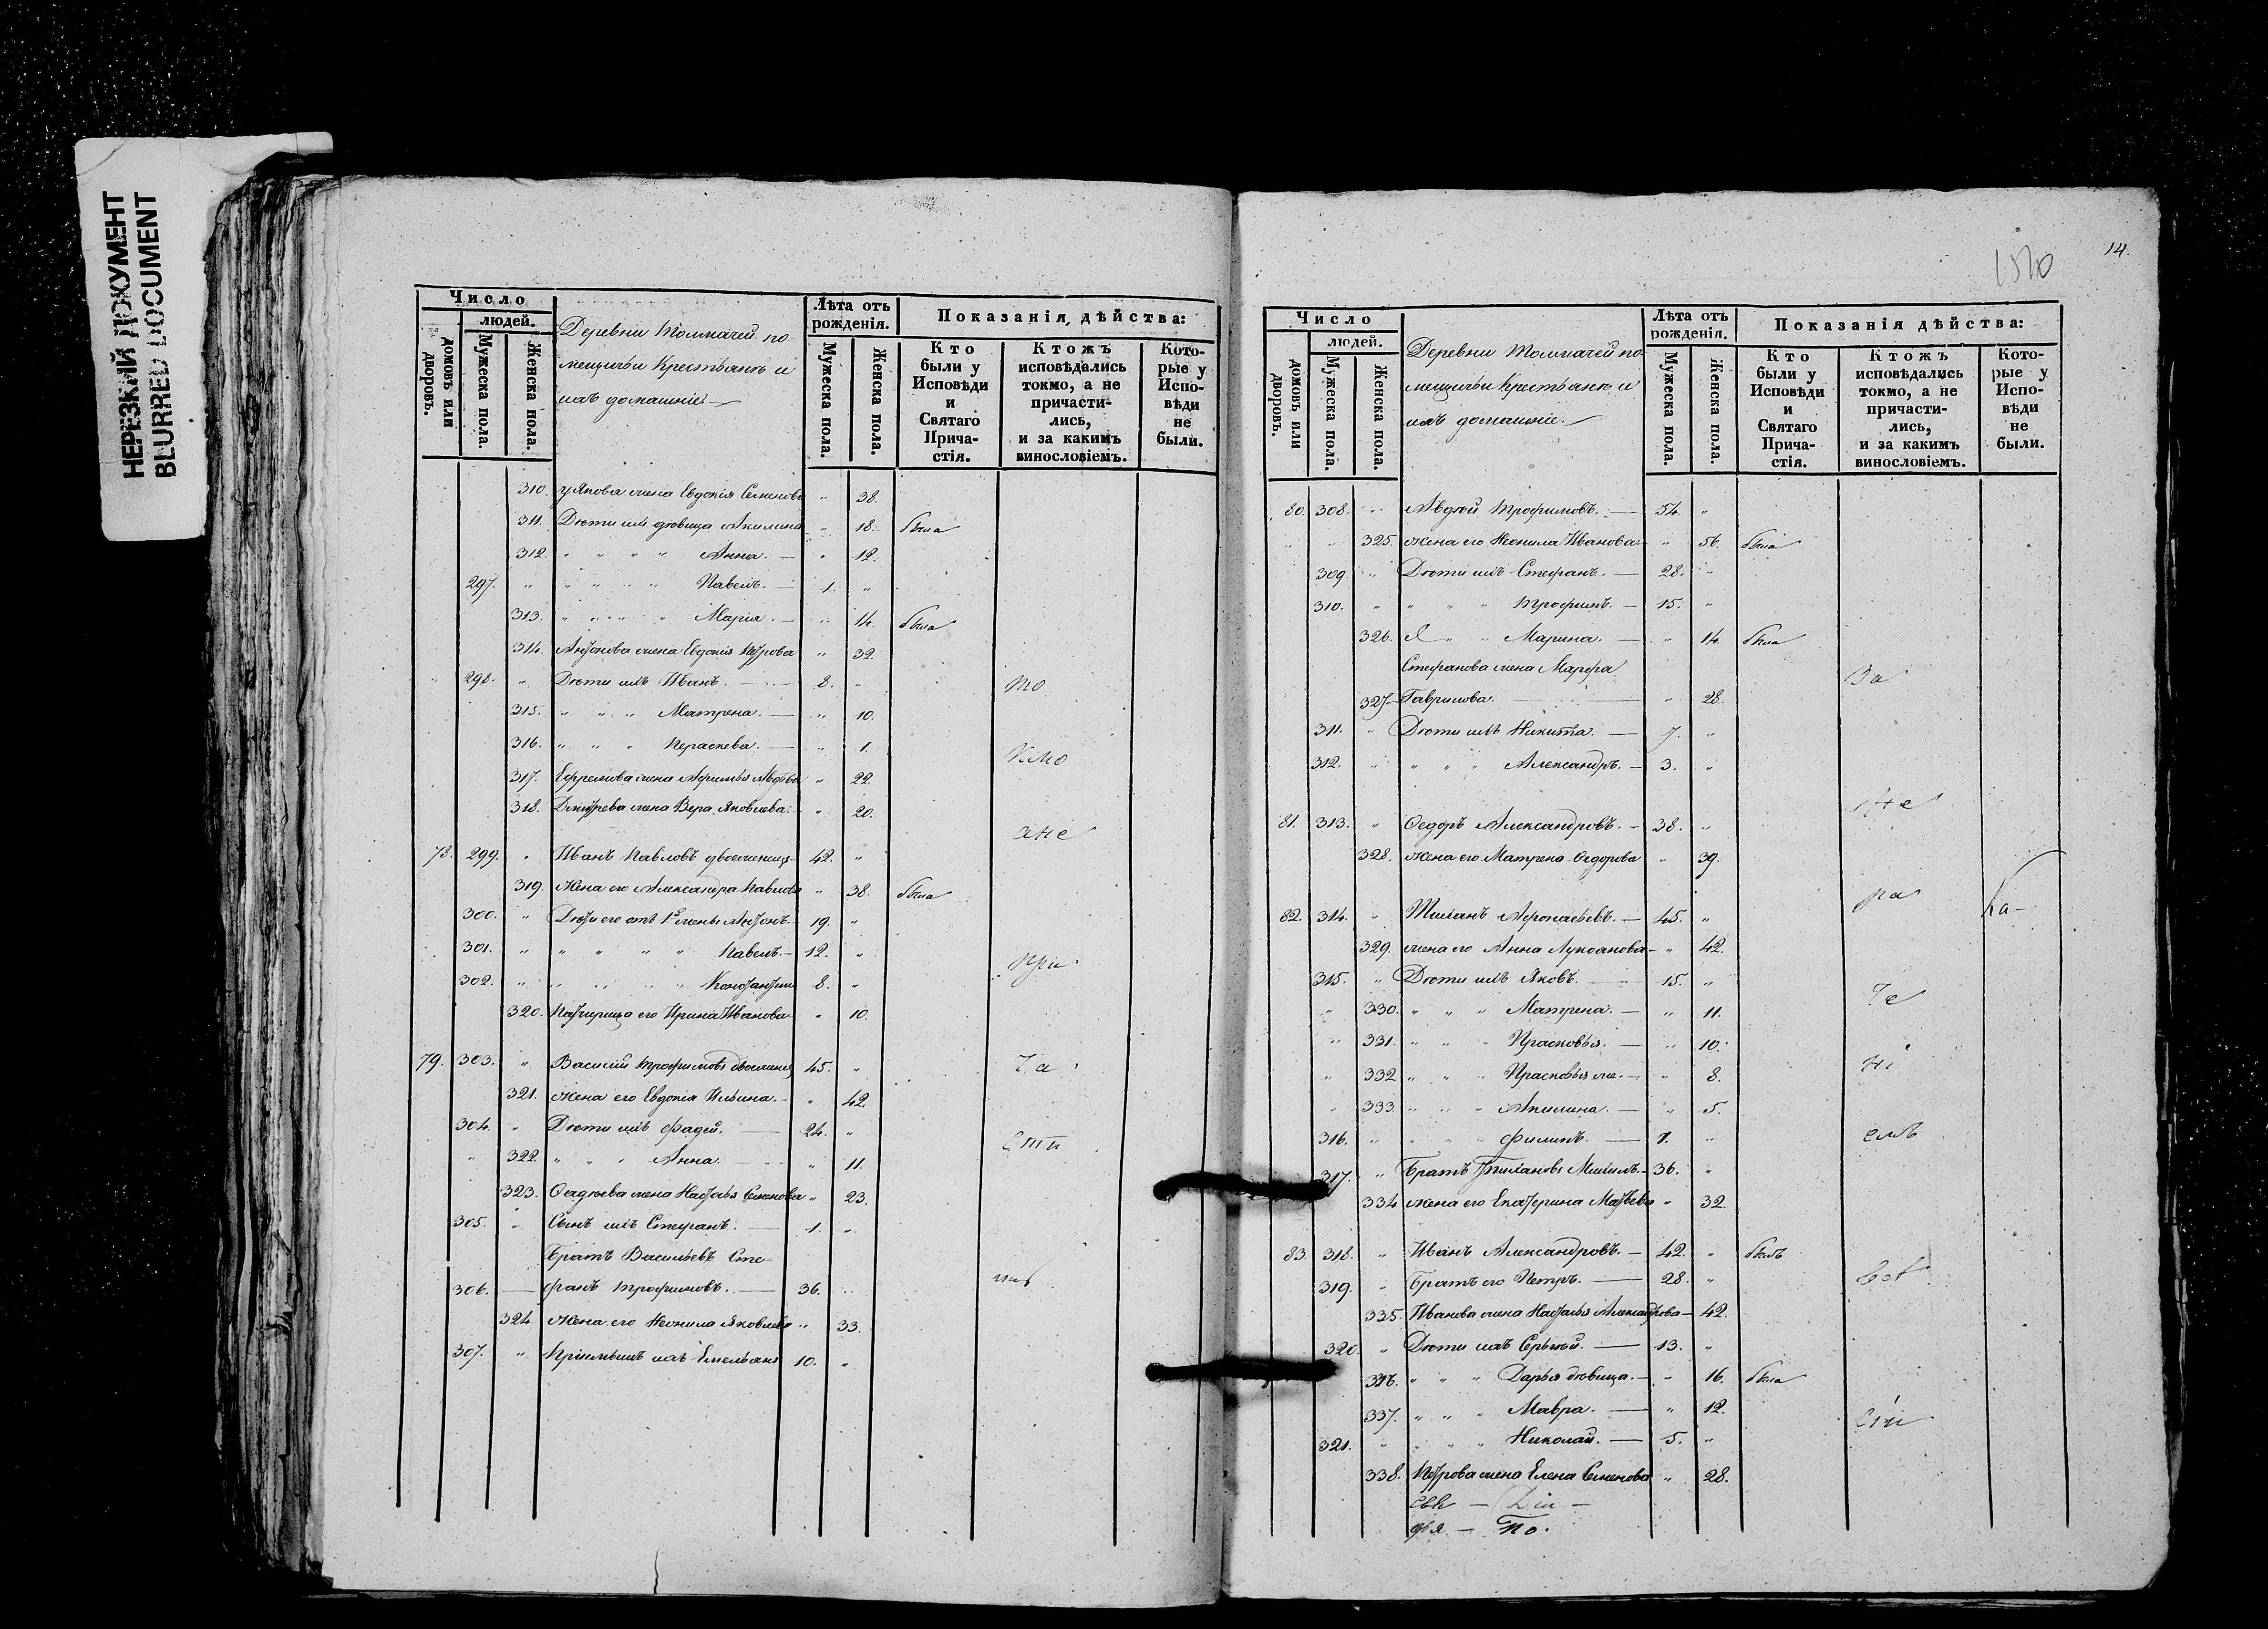 НЕРЕЗКИЙ ДОКУМЕНТ
BLURRED DOCUMENT
Число
людей.
домовъ или дворовъ.
Мужеска пола.
Женска пола.
Деревни Толмачей по
мещичьи крестьяне и
ихъ домашніе.
Лѣта отъ рожденія.
Мужеска пола.
Женска пола.
Показанія дѣйства:
Кто были у Исповѣди и Святаго Прича-стія.
Ктожъ исповѣдались токмо, а не причасти-лись, и за какимъ винословіемъ.
Кото-рые у Испо-вѣди не были.
310. Якова жена Евдокія Семенова " 38.
311. Дѣти ихъ дѣвица Акилина " 18. была
312. " " " " Анна. — " 12.
297. " " " " " Павелъ. — 1. "
313. " " " " Марія. — " 14. была
314. Антонова жена Евдокія Петрова " 32.
298. " Дѣти ихъ Иванъ. — 8. " то
315. " " " Матрена. — " 10.
316. " " " Пераскева. — " 1.
317. Ефремова жена Афимья " 22.
318. Дмитрева жена Вера Яковлева. " 20.
ане
78. 299. " Иванъ Павловъ двоеженецъ 42. "
319. Жена его Александра Павлова " 38. была
300. " Дѣти его отъ 1й жены Антонъ. 19. "
301. " " " " " Павелъ. — 12. " при
302. " " " " " Константинъ 8. "
320. Падчерица его Ирина Иванова " 10.
79. 303. " Василій Трофимовъ двоеженецъ 45. " ча
321. Жена его Евдокія Ильина. — " 42.
304. " Дѣти ихъ Фадей. — 24. "
" 322. " " " Анна. — " 11. сти
323. Фадѣева жена Наталья Семенова " 23.
305. " Сынъ ихъ Стефанъ. — 1. "
Братъ Васильевъ Сте-
306. — фанъ Трофимовъ. — 36. "
324. Жена его Неонила Яковлева " 33.
307. " Пріемышъ ихъ Емельянъ 10. "
14.
Число
людей.
домовъ или дворовъ.
Мужеска пола.
Женска пола.
Деревни Толмачей по-
мещичьи крестьяне и
ихъ домашніе.
Лѣта отъ рожденія.
Мужеска пола.
Женска пола.
Показанія дѣйства:
Кто были у Исповѣди и Святаго Прича-стія.
Ктожъ исповѣдались токмо, а не причасти-лись, и за какимъ винословіемъ.
Кото-рые у Испо-вѣди не были.
80. 308. " Авдѣй Трофимовъ. — 54. "
" " 325. Жена его Неонила Иванова " 56. была
309. " Дѣти ихъ Стефанъ. — 28. "
310. " " " " Трофимъ. — 15. "
326. " " Марина. — " 14. была
Стефанова жена Марфа
За
327. Гаврилова. — " 28.
311. " Дѣти ихъ Никита. — 7. "
312. " " " " Александръ. — 3. "
81. 313. " Ѳедоръ Александровъ. — 38. "
328. Жена его Матрена Ѳедорова " 39.
ра
82. 314. " Тиханъ Афонасьевъ. — 45. "
329. жена его Анна Лукоянова — " 42.
315. " Дѣти ихъ Яковъ. — 15. "
че
" 330. " " " Матрена. — " 11.
" 331. " " " Прасковья. — " 10.
ні
" 332 " " " Прасковья же. — " 8.
" 333. " " " Акилина. — " 5.
316. " " " " Филипъ. — 1. " емъ
317. " Братъ Тихановъ Михаилъ — 36. "
334 жена его Екатерина Матвѣева " 32.
83. 318. " Иванъ Александровъ. — 42. " былъ
319. " Братъ его Петръ. — 28. "
335. Иванова жена Наталья Александрова — 42.
320. " Дѣти ихъ Сергѣй. — 13. "
336. " " " Дарья дѣвица. — " 16. была
337. " " " Мавра. — " 12.
321. " " " " Николай. — 5. "
338. Петрова жена Елена Семенова " 28.